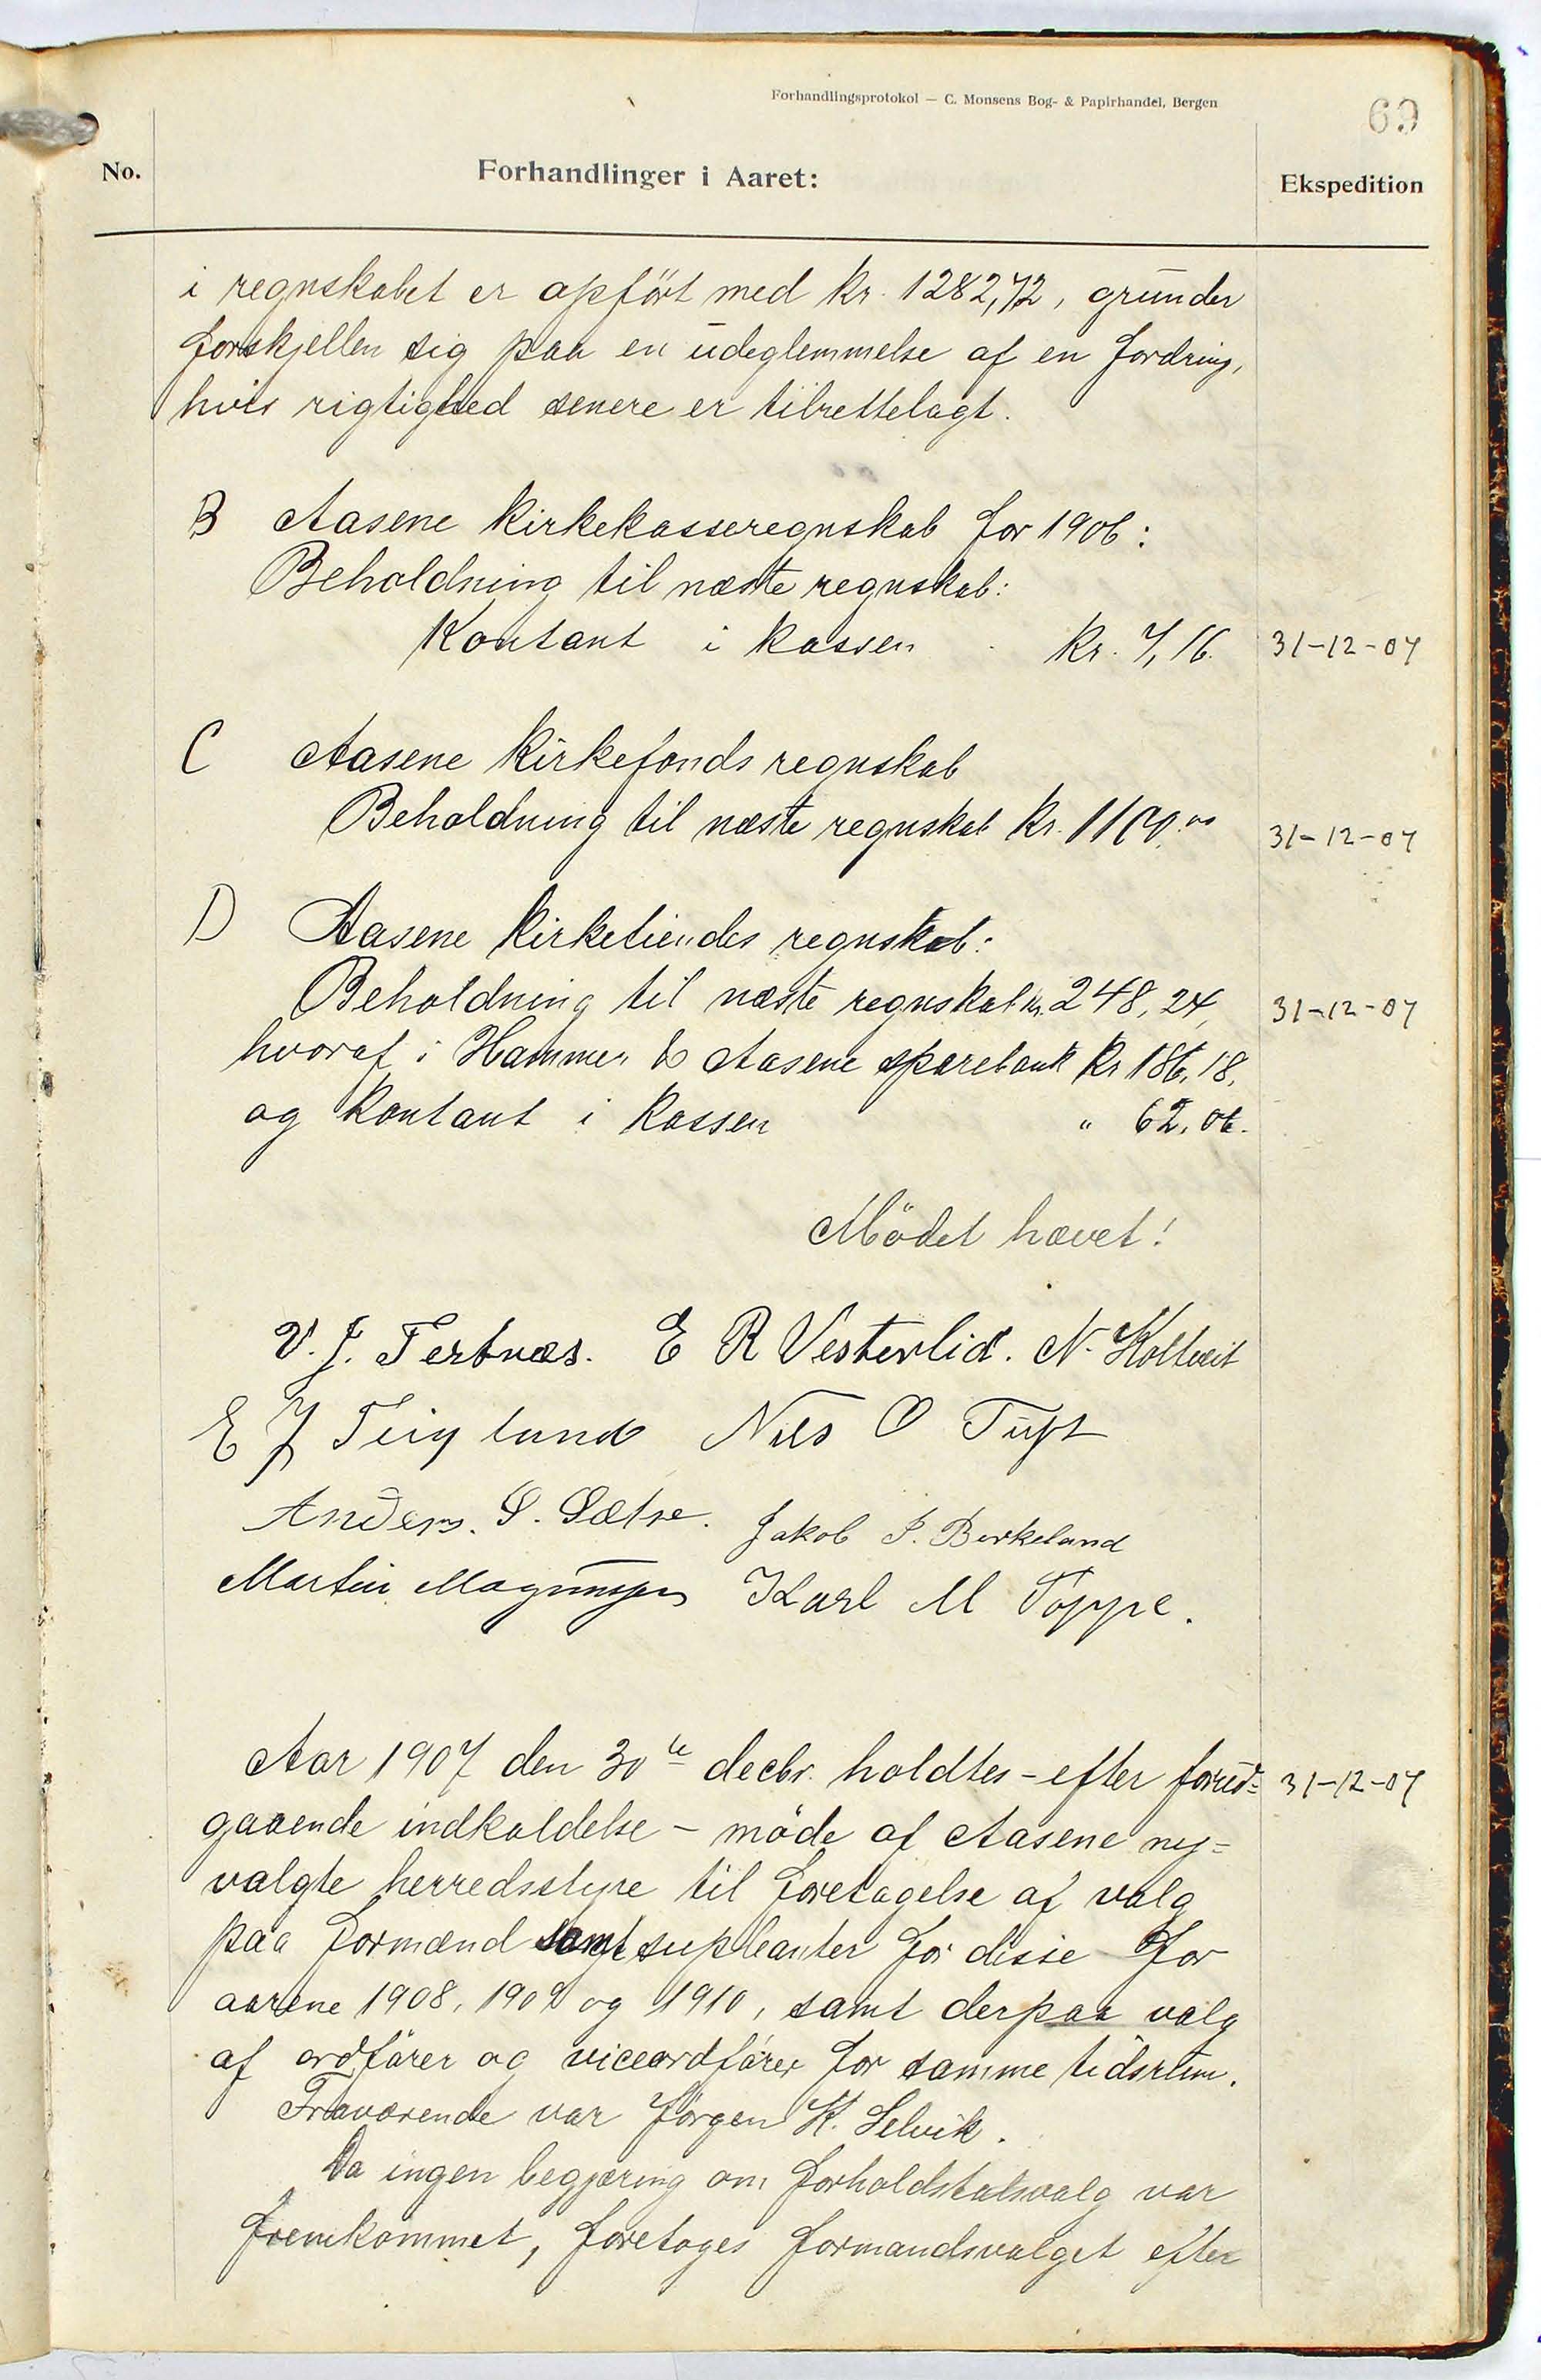 Forhandlingsprotokol — C. Monsens Bog- & Papirhandel, Bergen
69
No.
Forhandlinger i Aaret:
Ekspedition
i regnskabet er opført med kr. 1282,72, grunder
forskjellen sig paa en udeglemmelse af en fordring,
hvis rigtighed senere er tilrettelagt.
B Aasene kirkekasseregnskab for 1906:
Beholdning til næste regnskab:
Kontant i kassen kr. 7,16. 31-12-07
C Aasene kirkefonds regnskab
Beholdning til næste regnskab kr. 31-12-07
D Aasene kirketiendes regnskab:
Beholdning til næste regnskab kr. 248,24, 31-12-07
hvoraf i Hammer & Aasene sparebank kr 186,18,
og kontant i kassen " 62,06.
Mödet hævet!
V. J. Tertnæs. E R Vesterlid. N. Koltveit
E J Teiglund Nils O Tuft
Anders. S. Sætre. Jakob P. Birkeland
Martin Magnussen Karl M Toppe.
Aar 1907 den 30te decbr. holdtes - efter forud= 31-12-07
gaaende indkaldelse - möde af Aasene ny=
valgte herredsstyre til foretagelse af valg
paa formænd samt supleanter for disse for
aarene 1908, 1909 og 1910, samt derpaa valg
af ordfører og viceordfører for samme tidsrum.
Fraværende var Jørgen K. Selvik.
Da ingen begjæring om forholdstalsvalg var
fremkommet, foretoges formandsvalget efter